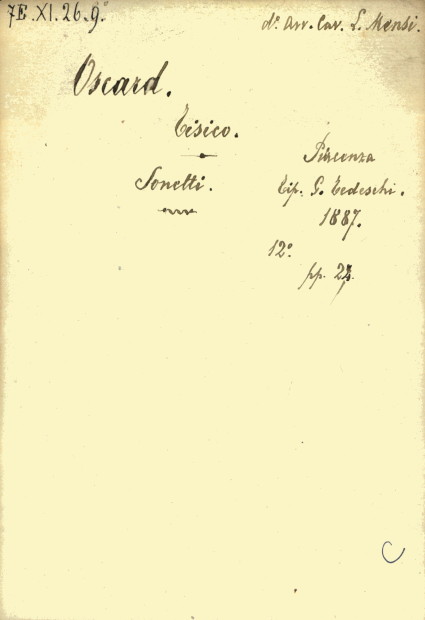 7E.XI.26.9°
d°. Avv. Cav. L. Mensi.
Oscard.
Tisico.
Sonetti.
Piacenza
Tip. G. Tedeschi.
1887.
12°.
pp. 24.
C